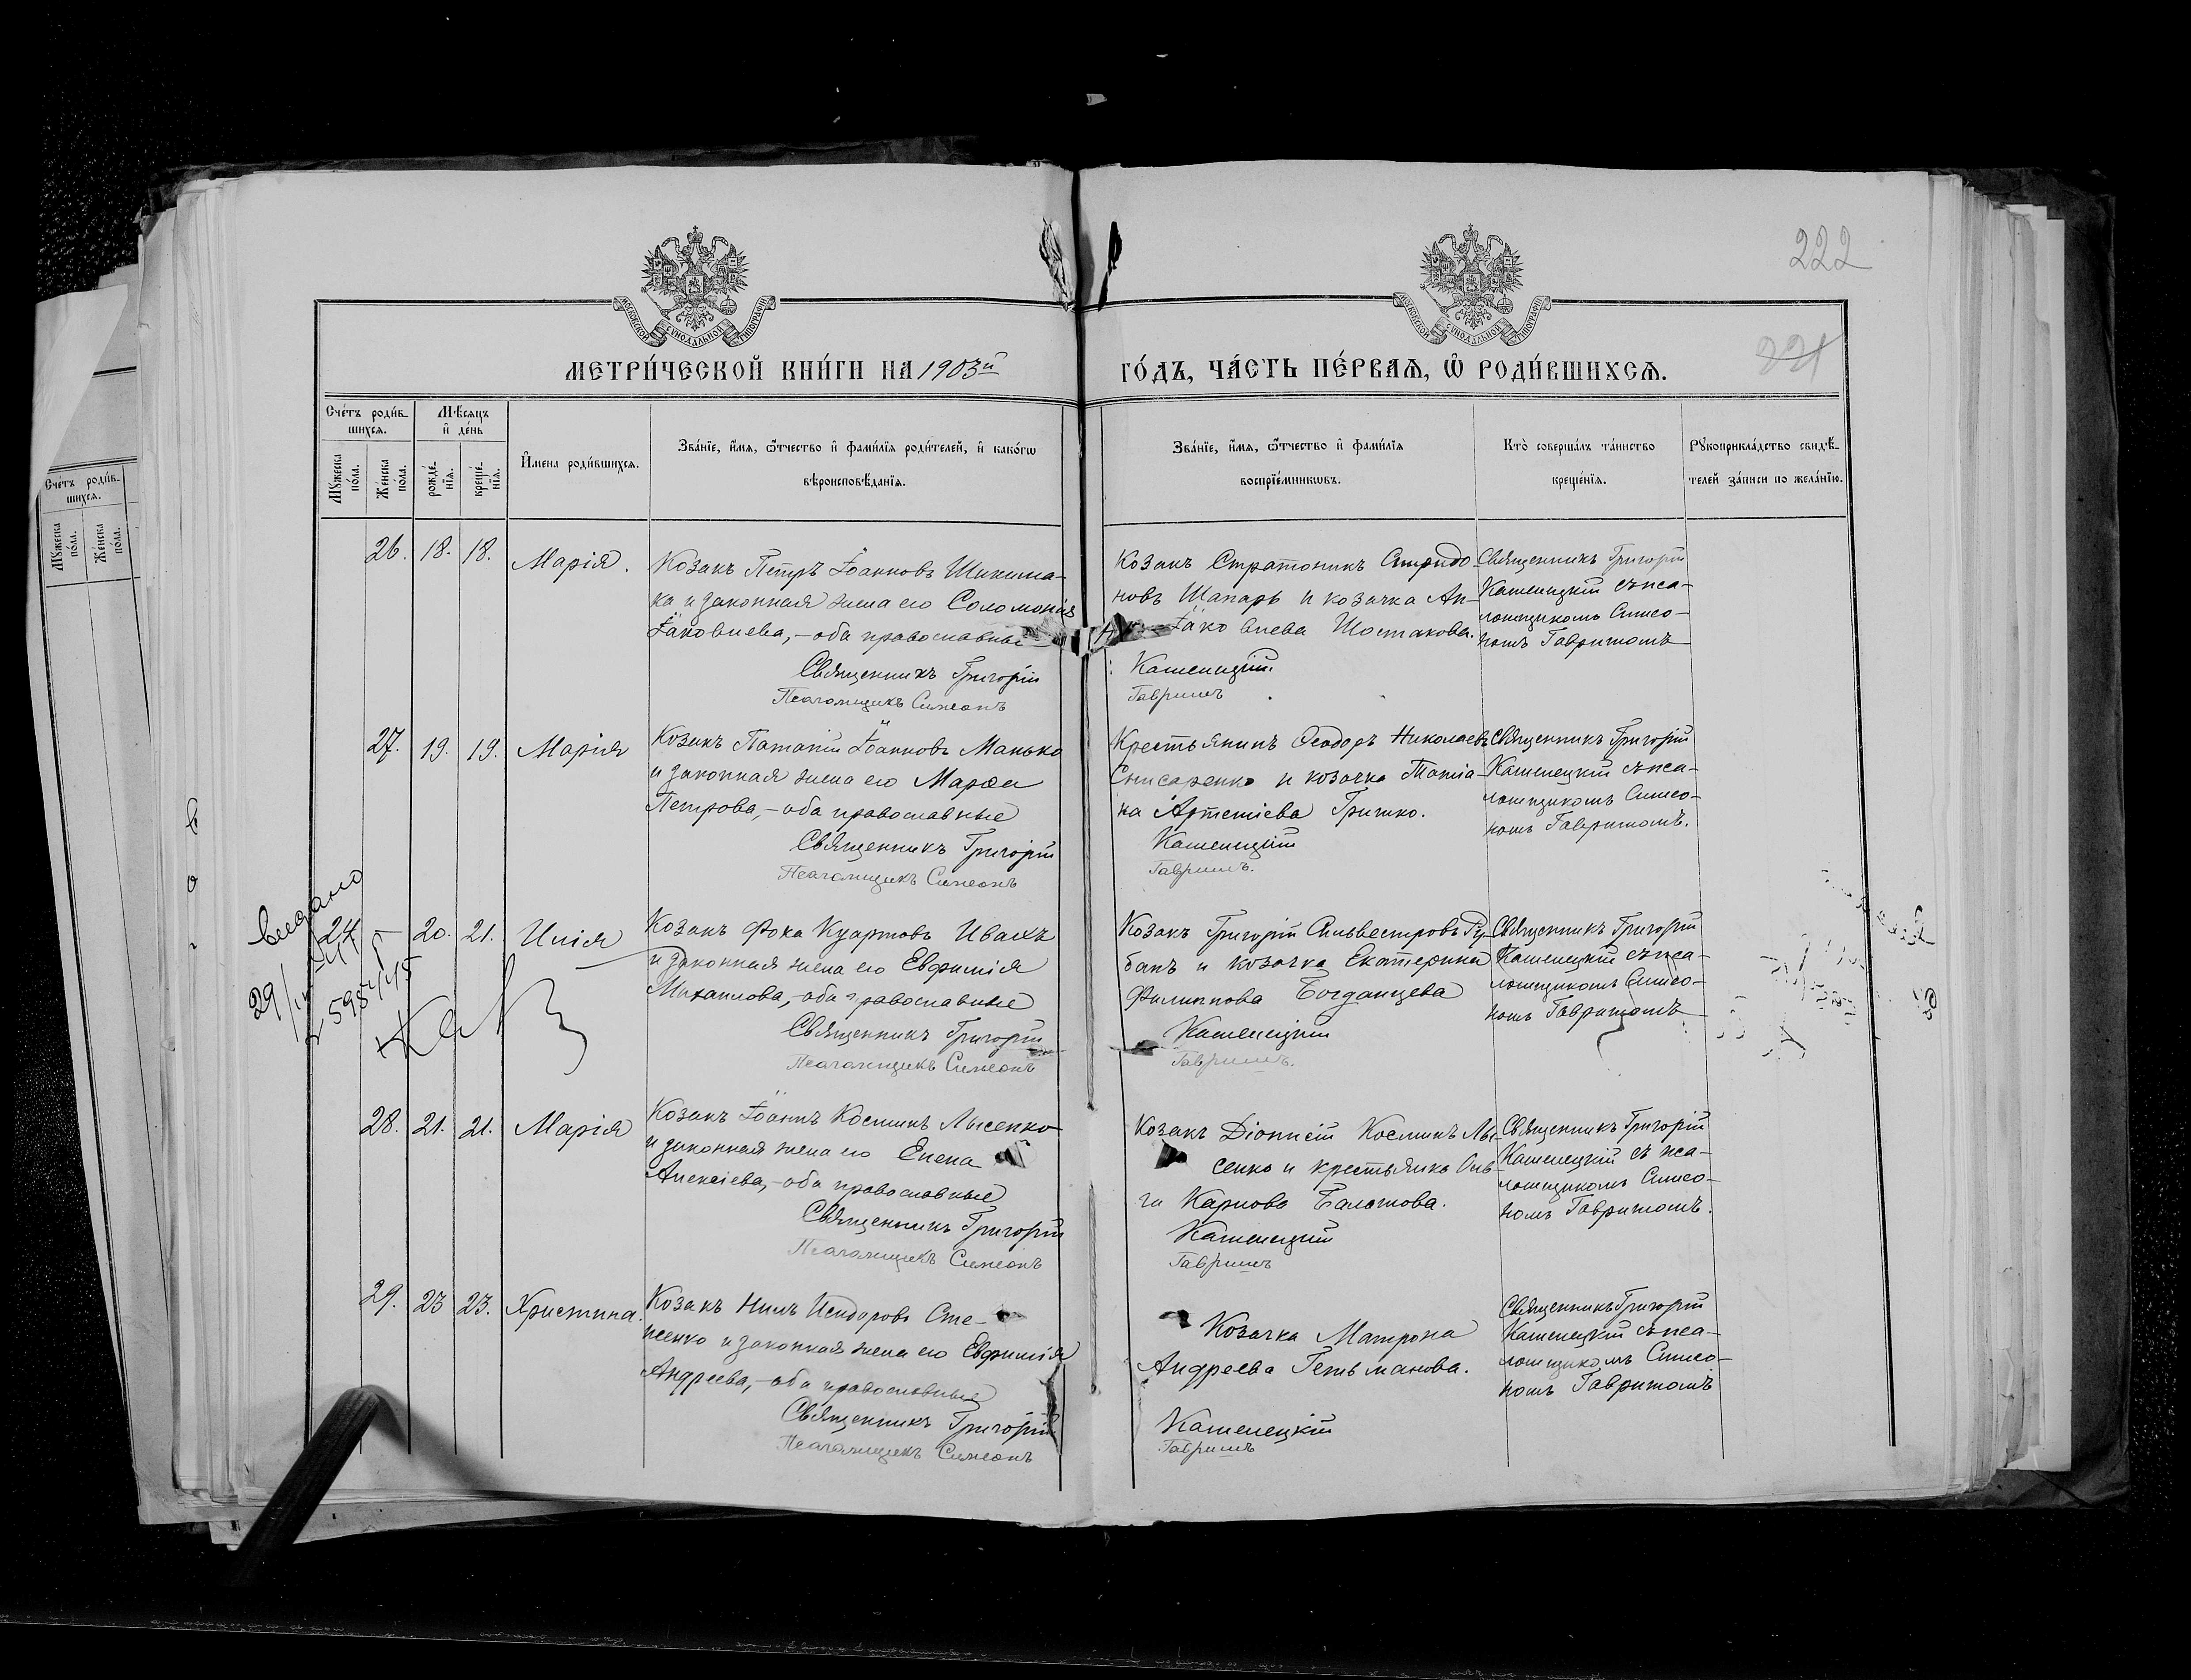 222
221
МОСКОВСКОЙ СѴНОДАЛЬНОЙ ТИПОГРАФІИ
МОСКОВСКОЙ СѴНОДАЛЬНОЙ ТИПОГРАФІИ
МЕТРИ́ЧЕСКОЙ КНИ́ГИ НА 1903й
ГО́ДЪ, ЧА́СТЬ ПЕ́РВАѦ, Ѽ РОДИ́ВШИХСѦ.
Сче́тъ роди́в-
шихсѧ.
Мꙋ́жеска
по́ла.
Же́нска
по́ла.
Мѣ́сяцъ
и҆ де́нь
рожде́-
нїѧ.
креще́-
нїѧ.
И҆мена роди́вшихсѧ.
Зва́нїе, и҆́мѧ, ѻ҆́тчество и҆ фами́лїѧ роди́телей, и҆ како́гѡ
вѣроисповѣ́данїѧ.
Зва́нїе, и҆́мѧ, ѻ҆́тчество и҆ фами́лїѧ
воспрїе́мникѡвъ.
Кто̀ соверша́лъ та́инство
креще́нїѧ.
Рꙋкоприкла́дство свидѣ́-
телей за́писи по жела́нїю.
Сче́тъ роди́в-
шихсѧ.
Мꙋ́жеска
по́ла.
Же́нска
по́ла.
26. 18. 18. Марія.
Козакъ Петръ Іоанновъ
ка и законная жена его Соломонія
Іаковлева, - оба православные
Священникъ Григорій
Псаломщикъ Симеонъ
Козакъ Стратоникъ Спиридо-
новъ Шапарь и козачка Ан-
на Іаковлева Шостакова.
Каменецкій.
Гавришъ
Священникъ Григорій
Каменецкій съ пса-
ломщикомъ Симео-
номъ Гавришомъ
27. 19. 19. Марія
Козакъ Потапій Іоанновъ Манько
и законная жена его Марѳа
Петрова, - оба православные
Священникъ Григорій
Псаломщикъ Симеонъ
Крестьянинъ Ѳеодоръ Николаевъ
Снисаренко и козачка Татіа-
на Артеміева Гришко.
Каменецкій
Гавришъ.
Священникъ Григорій
Каменецкій съ пса-
ломщикомъ Симео-
номъ Гавришомъ.
выдано
24 20. 21. Илія
Козакъ Фока Куартовъ Ивахъ
и законная жена его Евфимія
Михаилова, - оба православные
Священникъ Григорій
Псаломщикъ Симеонъ
Козакъ Григорій Сильвестровъ Ру-
банъ и козачка Екатерина
Филиппова Богданцева
Каменецкій
Гавришъ.
Священникъ Григорій
Каменецкій съ пса-
ломщикомъ Симео-
номъ Гавришомъ
28. 21. 21. Марія
Козакъ Іоаннъ Косминъ Лысенко
и законная жена его Елена
Алексіева, - оба православные
Священникъ Григорій
Псаломщикъ Симеонъ
Козакъ Діонисій Косминъ Лы-
сенко и крестьянка Оль-
га Карпова
Каменецкій
Гавришъ
Священникъ Григорій
Каменецкій съ пса-
ломщикомъ Симео-
номъ Гавришомъ.
29. 23 23. Христина.
Козакъ Нилъ Исидоровъ Сте-
ценко и законная жена его Евфимія
Андреева, - оба православные
Священникъ Григорій
Псаломщикъ Симеонъ
Козачка Матрона
Андреева Гетьманова.
Каменецкій
Гавришъ
Священникъ Григорій
Каменецкій съ пса-
ломщикомъ Симео-
номъ Гавришомъ